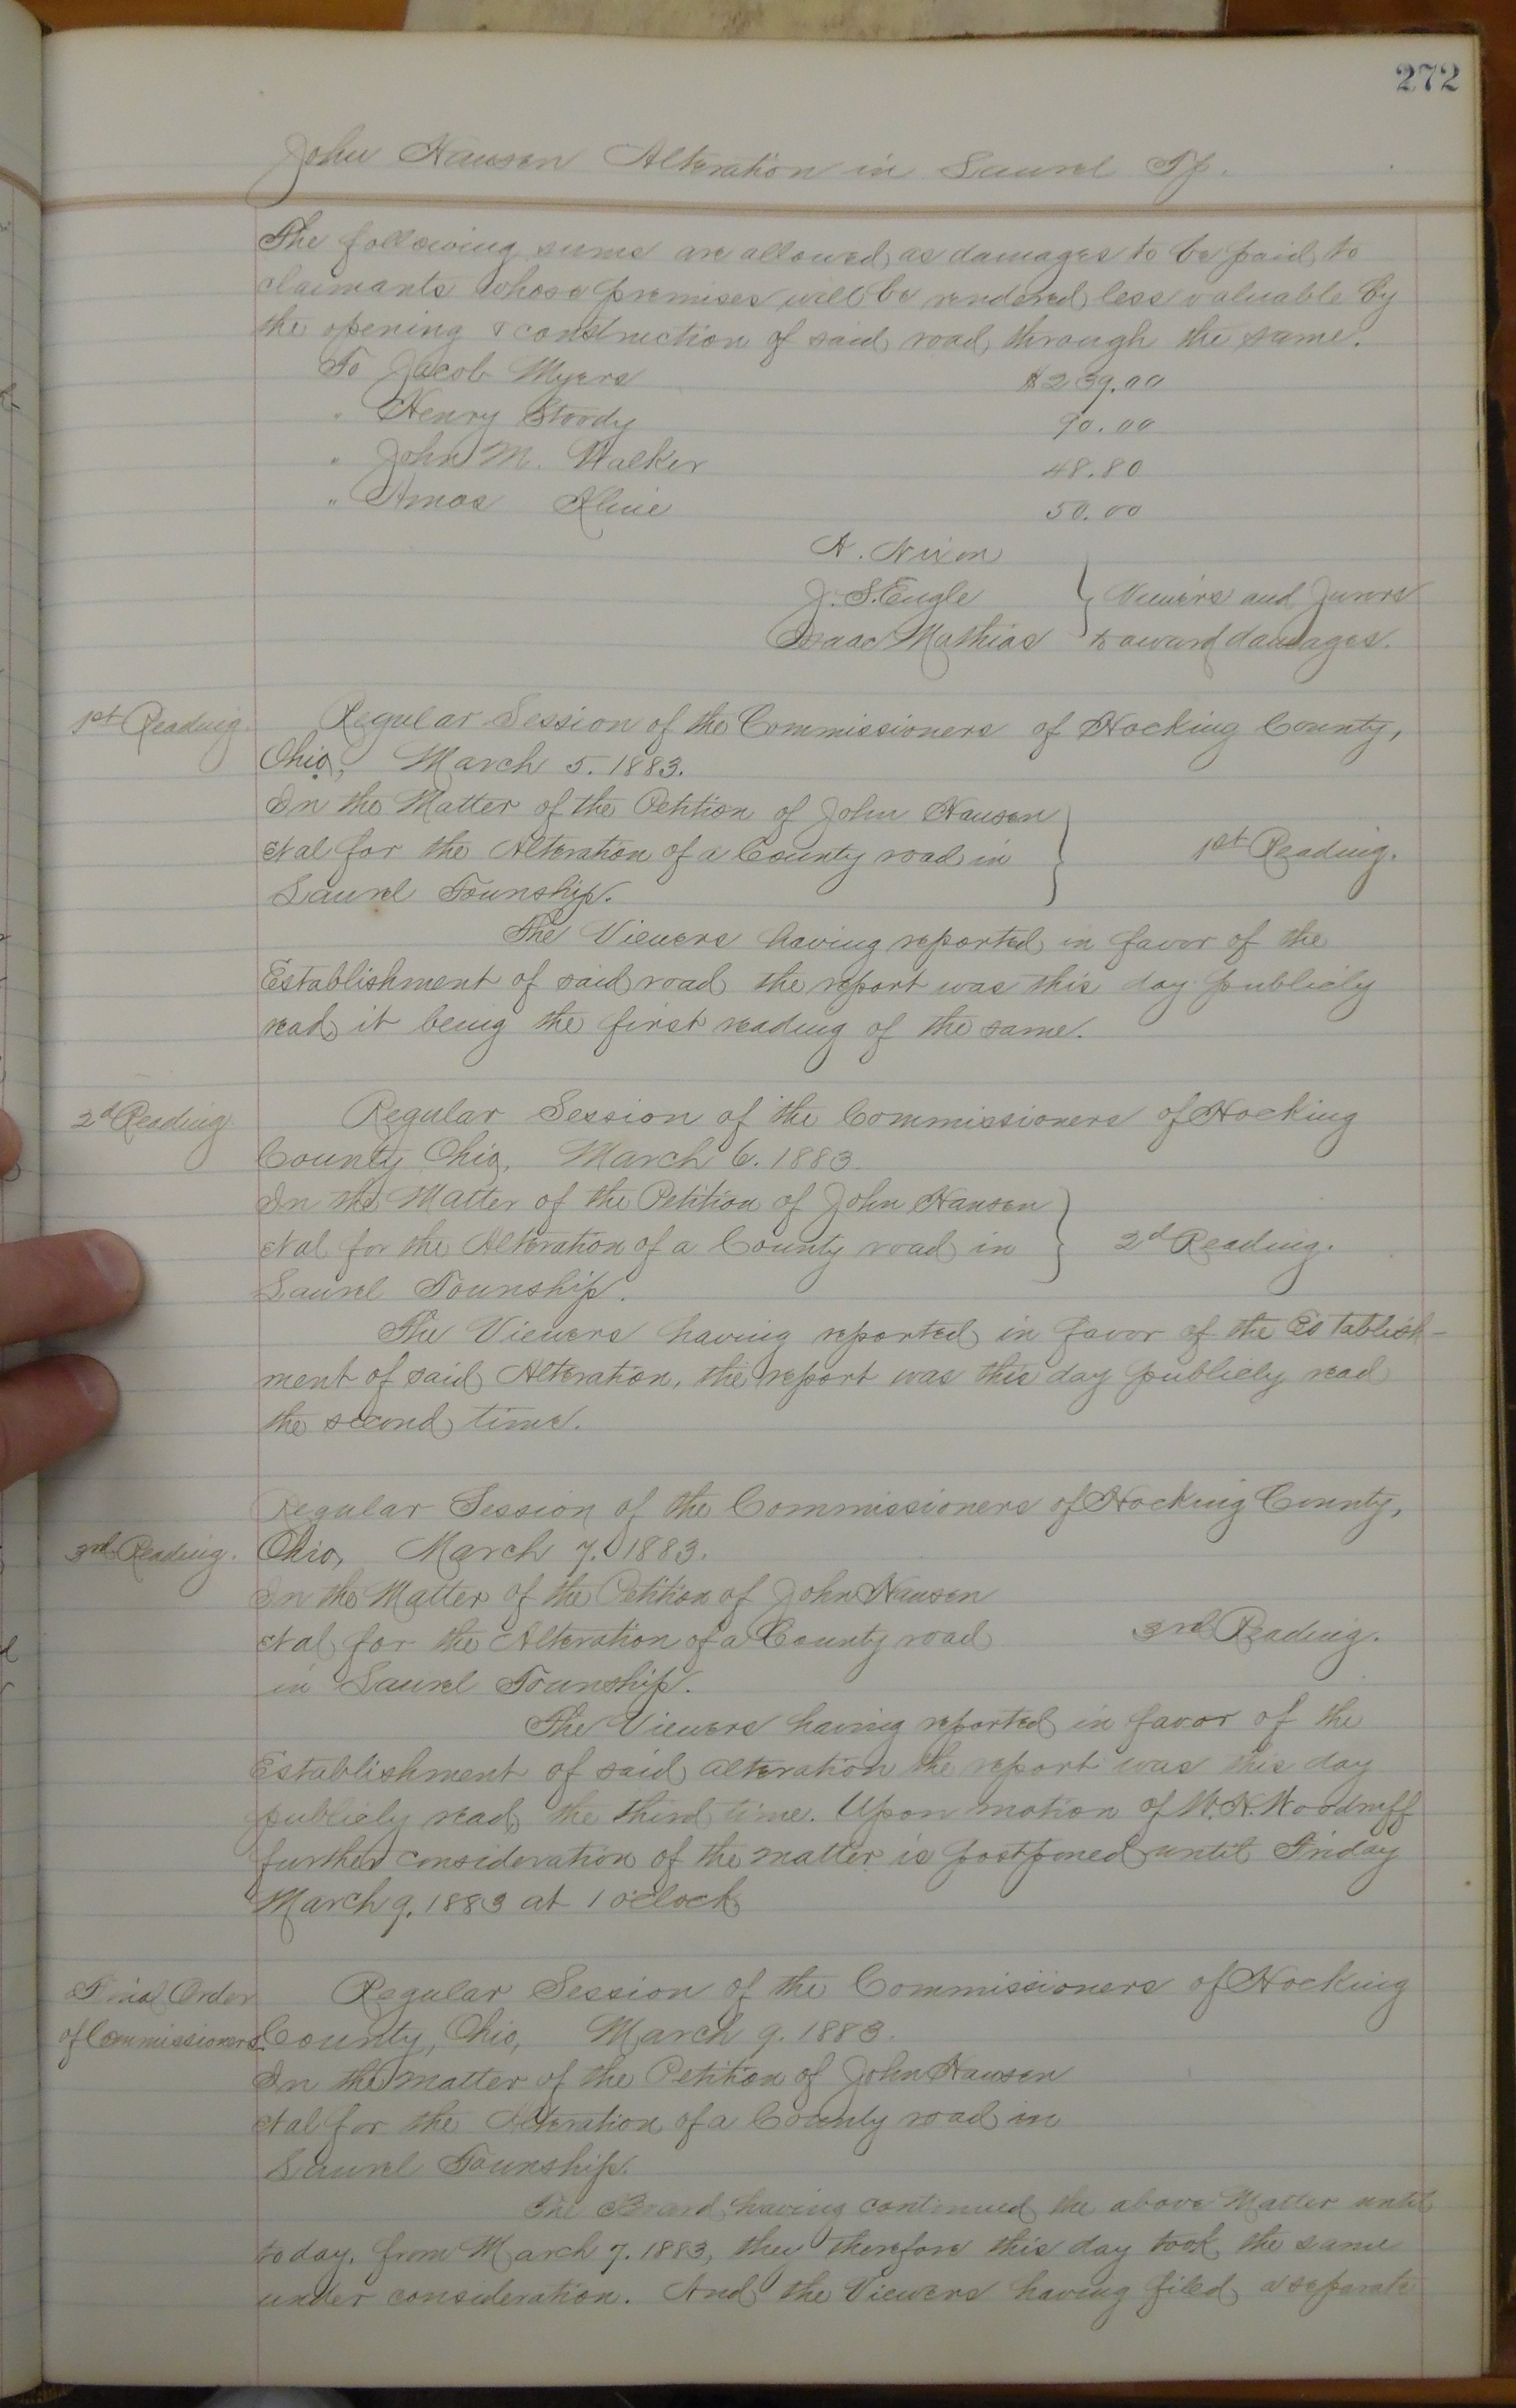 272
John Hansen Alteration in Laurel Tp.
The following sums are allowed as damages to be paid to
claimants whose premises will be rendered less valuable by
the opening & construction of said road through the same.
To Jacob Myers $239.00
" Henry Stoody 90.00
" John M. Walker 48.80
" Amos Kline 50.00
A. Nixon
J. S. Engle } Viewers and Jurors
Isaac Mathias to award damages.
1st Reading. Regular Session of the Commissioners of Hocking County,
Ohio, March 5. 1883.
In the Matter of the Petition of John Hansen
et al for the Alteration of a County road in } 1st Reading.
Laurel Township.
The Viewers having reported in favor of the
Establishment of said road the report was this day publicly
read it being the first reading of the same.
2d Reading Regular Session of the Commissioners of Hocking
County Ohio, March 6. 1883.
In the Matter of the Petition of John Hansen
et al for the Alteration of a County road in } 2d Reading.
Laurel Township.
The Viewers having reported in favor of the Establish-
ment of said Alteration, the report was this day publicly read
the second time.
Regular Session of the Commissioners of Hocking County,
3rd Reading. Ohio, March 7. 1883.
In the Matter of the Petition of John Hansen
et al for the Alteration of a County road 3rd Reading.
in Laurel Township.
The Viewers having reported in favor of the
Establishment of said alteration the report was this day
publicly read the third time. Upon motion of W. H. Woodruff
further consideration of the matter is postponed until Friday
March 9. 1883 at 1 o'clock
Final Order Regular Session of the Commissioners of Hocking
of Commissioners. County, Ohio, March 9. 1883.
In the matter of the Petition of John Hansen
et al for the Alteration of a County road in
Laurel Township.
The Board having continued the above Matter until
today, from March 7. 1883, they therefore this day took the same
under consideration. And the Viewers having filed a separate